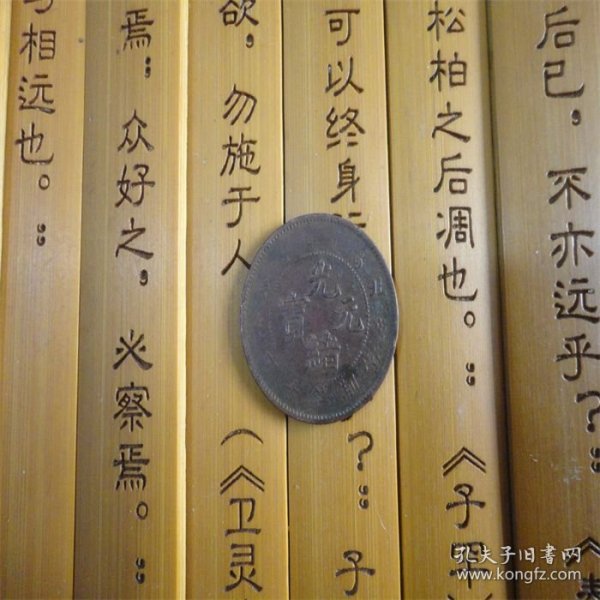 后已，不亦远乎？”《
松柏之后凋也。”《子罕
可以终身
？”子
欲，勿施于人
（《卫灵
焉；众好之，必察焉。”
相远也。”
光緒元寶
孔夫子旧书网
www.kongfz.com